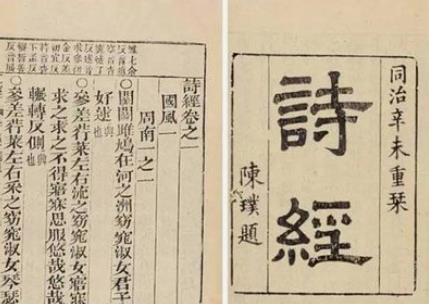 同治辛未重栞
詩經
陳璞題
詩經卷之一
國風一
周南一之一
○關關雎鳩在河之洲窈窕淑女君子
好逑興也
○參差荇菜左右流之窈窕淑女寤寐
求之求之不得寤寐思服悠哉悠哉
輾轉反側興也
○參差荇菜左右采之窈窕淑女琴瑟
雎七余